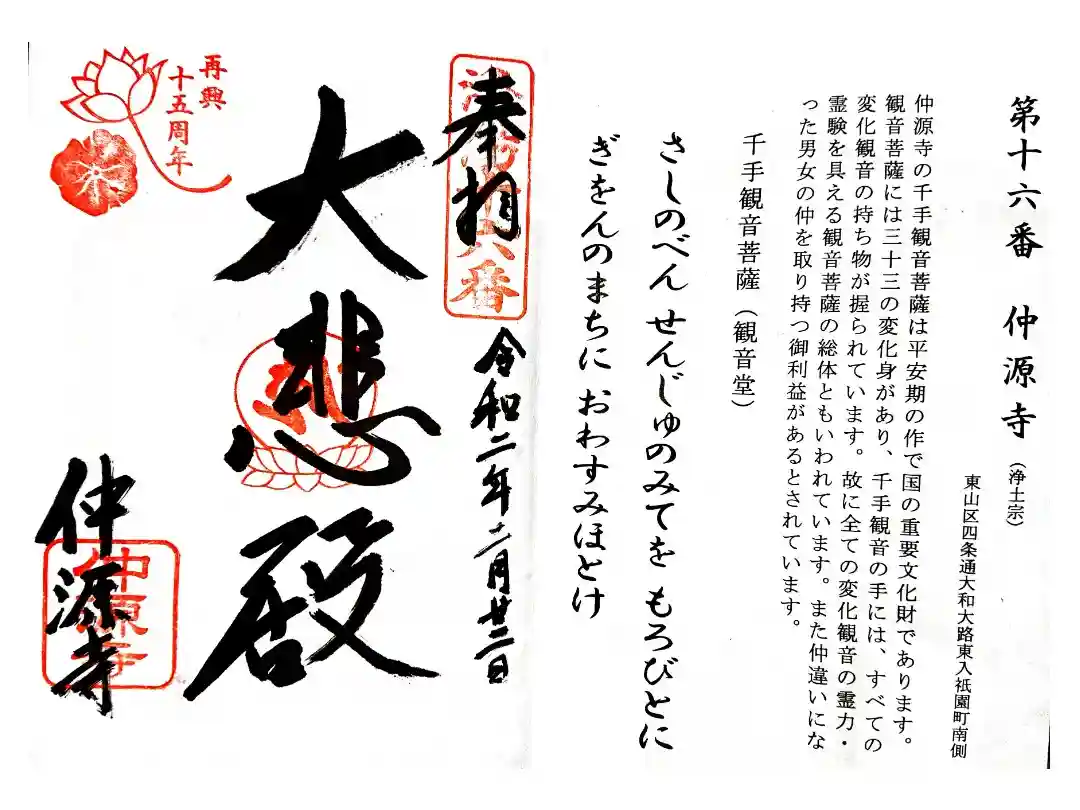 第十六番　仲源寺（浄土宗）
東山区四条通大和大路東入祇園町南側
仲源寺の千手観音菩薩は平安期の作で国の重要文化財であります。
観音菩薩には三十三の変化身があり、千手観音の手には、すべての
変化観音の持ち物が握られています。故に全ての変化観音の霊力・
霊験を具える観音菩薩の総体ともいわれています。また仲違いにな
った男女の仲を取り持つ御利益があるとされています。
千手観音菩薩（観音堂）
さしのべん せんじゅのみてを もろびとに
ぎをんのまちに おわすみほとけ
奉拝
六番
令和二年二月廿二日
大悲殿
再興
十五周年
仲源寺
仲源寺